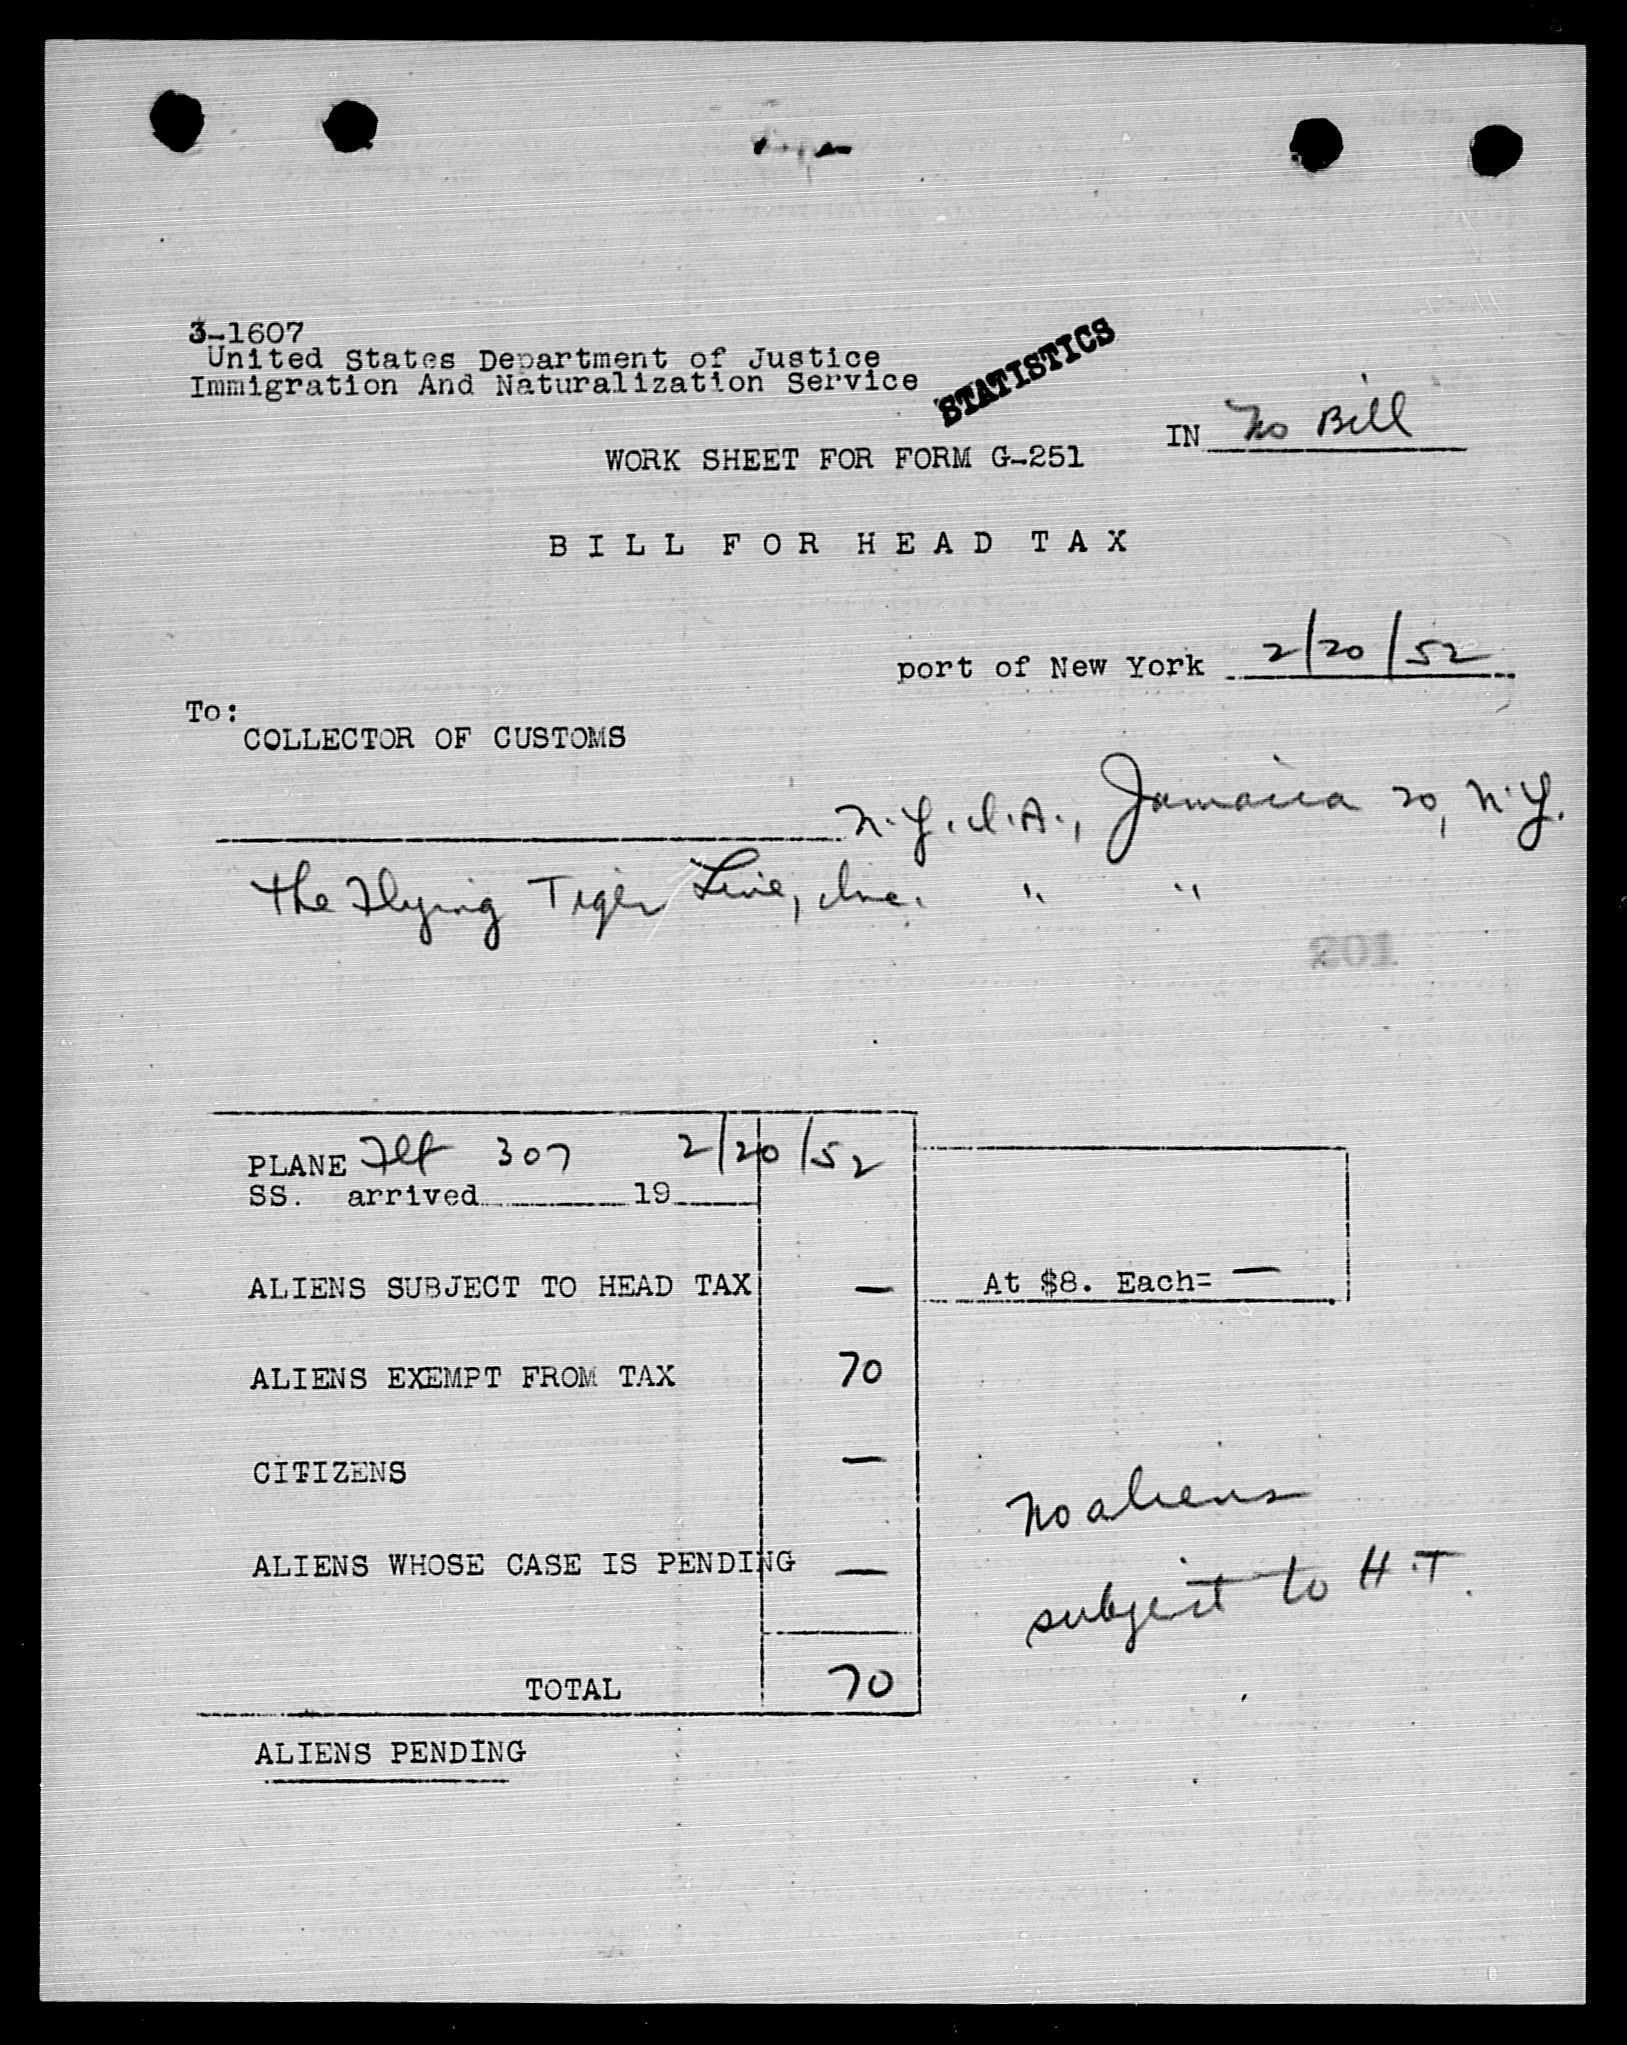 3-1607
United States Department of Justice
Immigration And Naturalization Service
STATISTICS
IN No Bill
WORK SHEET FOR FORM G-251
BILL FOR HEAD TAX
port of New York 2/20/52
To:
COLLECTOR OF CUSTOMS
N.Y.I.A., Jamaica 20, N.Y.
The Flying Tiger Line, Inc. " "
201
PLANE Flt 307 2/20/52
SS. arrived 19
ALIENS SUBJECT TO HEAD TAX — At $8. Each= —
ALIENS EXEMPT FROM TAX 70
CITIZENS —
No aliens
ALIENS WHOSE CASE IS PENDING —
subject to H.T.
TOTAL 70
ALIENS PENDING